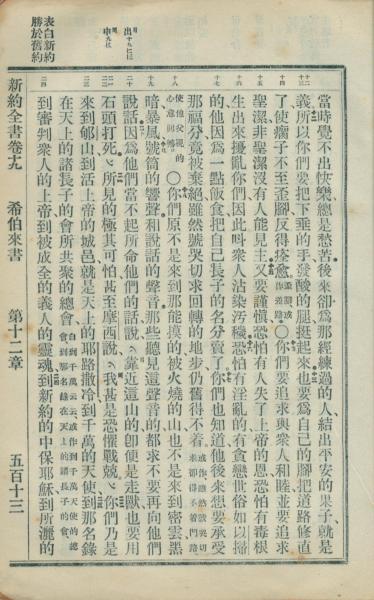 表白新約
勝於舊約
出十九𠀋十二三
申九𠀋十九
十二十三
十四
十五
十六
十七
十八
十九
二十
二一
二二
二三
二四
當時覺不出快樂、總是愁苦、後來卻爲那經練過的人、結出平安的果子就是
義所以你們要把下垂的手發酸的腿挺起來也要爲自己的腳把道路修直
了、使瘸子不至歪腳、反得痊愈、○你們要追求與衆人和睦、並要追求
聖潔、非聖潔沒有人能見主、又要謹愼、恐怕有人失了上帝的恩、恐怕有毒根
生出來擾亂你們、因此叫衆人沾染汚穢、恐怕有淫亂的、有貪戀世俗如以掃
的、他因爲一點飯食、把自己長子的名分賣了、你們也知道他後來想要承受
那福分、竟被棄絕、雖然號哭切求、回轉的地步、仍舊得不着、
使他父親的心意回轉○你們原不是來到那能摸的被火燒的山、也不是來到密雲黑
暗暴風、號筒的響聲、和說話的聲音、那些聽見這聲音的、都求不要再向他們
說話、因爲他們當不起所命他們的話、說、靠近這山的、卽便是走獸、也要用
石頭打死、所見的極其可怕、甚至摩西說、我甚是恐懼戰兢、你們乃是
來到郇山、到活上帝的城邑、就是天上的耶路撒冷、到千萬的天使、到那名錄
在天上的諸長子的會所共聚的總會、
到審判衆人的上帝、到被成全的義人的靈魂、到新約的中保耶穌、到所灑的
新約全書卷十九 希伯來書 第十二章 五百十三